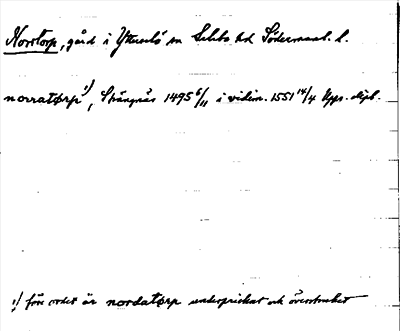 Norrtorp, gård i Ytterselö sn Selebo hd Södermanl. l.
norratørp 1), Strängnäs 1495 6/11 i vidim. 1551 14/4 Upps. dipl.
1) före ordet är nordatørp underprickat och överstruket